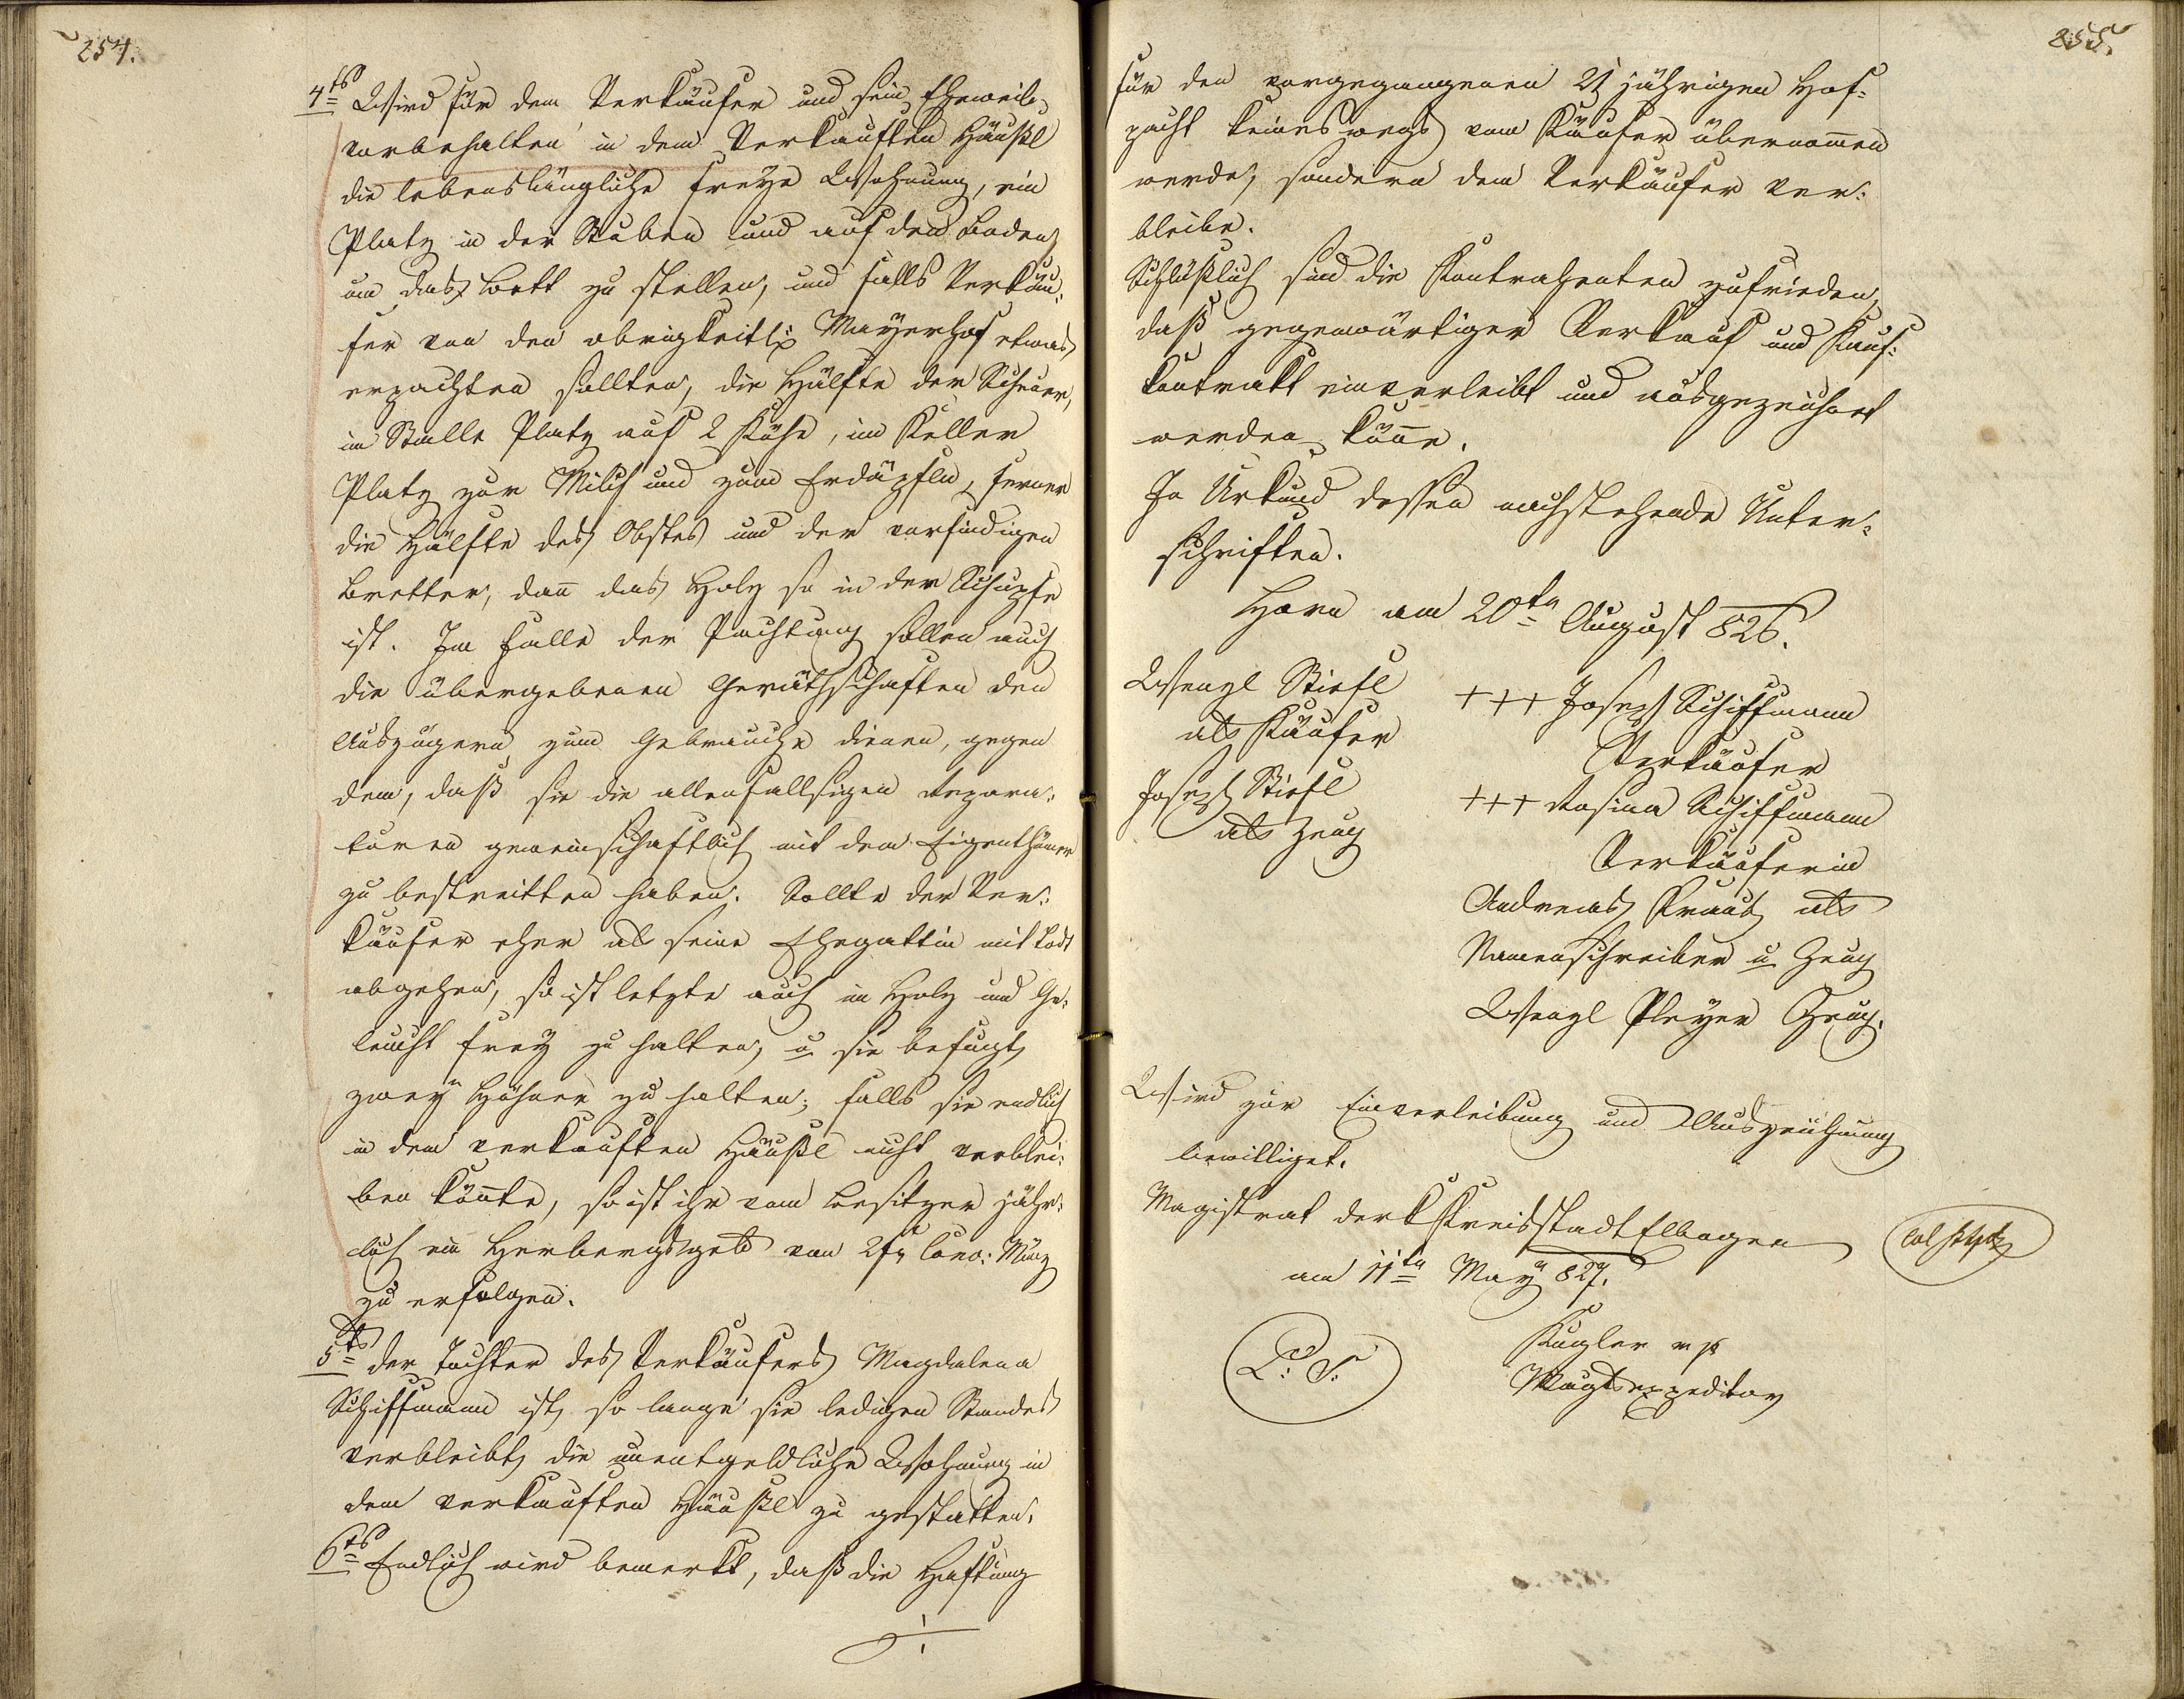 254.
4ts Wird für dem Verkäufer und sein Eheweib
vorbehalten in dem Verkauften Häußl
die lebenslängliche freÿe Wohnung, ein
Platz in der Stuben und auf den Boden
um das Bett zu stellen, und falls Verkäu:
fer von den obrigkeitl: Maÿerhof etwas
erpachten sollten, die Hälfte der Scheuer,
im Stalle Platz auf 2 Kühe, im Keller
Platz zur Milch und zum Erdäpfeln, ferner
die Hälfte des Obstes und der vorfindigen
Bretter, dañ das Holz so in der Schupfe
ist. Im Falle der Pachtung sollen auch
die übergebenen Geräthschaften den
Auszügern zum Gebrauche dienen, gegen
dem, daß sie die allenfallsigen Repara:
turen gemeinschaftlich mit dem Eigenthümer
zu bestreitten haben. Sollte der Ver:
käufer eher als seine Ehegattin mit Todt
abgehen, so ist letzte auch in Holz und Ge:
leucht freÿ zu halten, u sie befugt,
zweÿ Hühner zu halten; falls sie endlich
in dem verkauften Häußl nicht verblei:
ben köñte, so ist ihr vom Besitzer jähr:
lich ein Herbergsgeld von 2 fr Conv: Münz
zu erfolgen.
5ts der Tochter des Verkäufers Magdalena
Schiffmann ist, so lange sie ledigen Standes
verbleibt, die unentgeldliche Wohnung in
dem verkauften Häußl zu gestatten.
6ts Endlich wird bemerkt, daß die Haftung
./.
255.
für den vorgegangenen 21 jährigen Hof:
pacht keineswegs vom Käufer übernom̄en
werde, sondern dem Verkäufer ver:
bleibe.
Schlüßlich sind die Kontrahenten zufrieden,
daß gegenwärtiger Verkauf und Kauf:
kontrakt einverleibt und ausgezeichnet
werden köñe.
In Urkund dessen nachstehende Unter:
schriften.
Horn am 20tn August 826.
Wenzl Stiefl
als Käufer
Joseph Stiefl
als Zeug
+++ Joseph Schiffmann
Verkäufer
+++ Rosina Schiffmann
Verkäuferin
Andreas Kraus als
Namenschreiber u Zeug
Wenzl Pleÿer Zeug.
Wird zur Einverleibung und Auszeichnung
bewilliget.
Magistrat der k Kreisstadt Elbogen
am 11tn Maÿ 827.
L: S:
Kugler mp
Magtsexpeditor